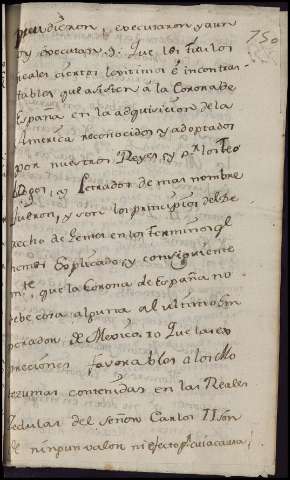 750
pudieron, executaron y aun
oy executan. 9. Que los titulos
reales ciertos legitimos e incontras-
tables que asisten á la Corona de
España en la adquisicion de la
America reconocidos y adoptados
por nuestros Reyes, y Pr los Teo
logos, y Letrados de mas nombre
fueron, y son los principios del De
recho de Gentes en los terminos ql
hemos Explicado, y consiguiente
mte, que la Corona de España no
debe cosa alguna al ultimo Em
perador de Mexico. 10 Que las ex
presiones favorables a los Mo
tezumas contenidas en las Reales
Cedulas del Señor Carlos II són
de ningun valor ni efecto